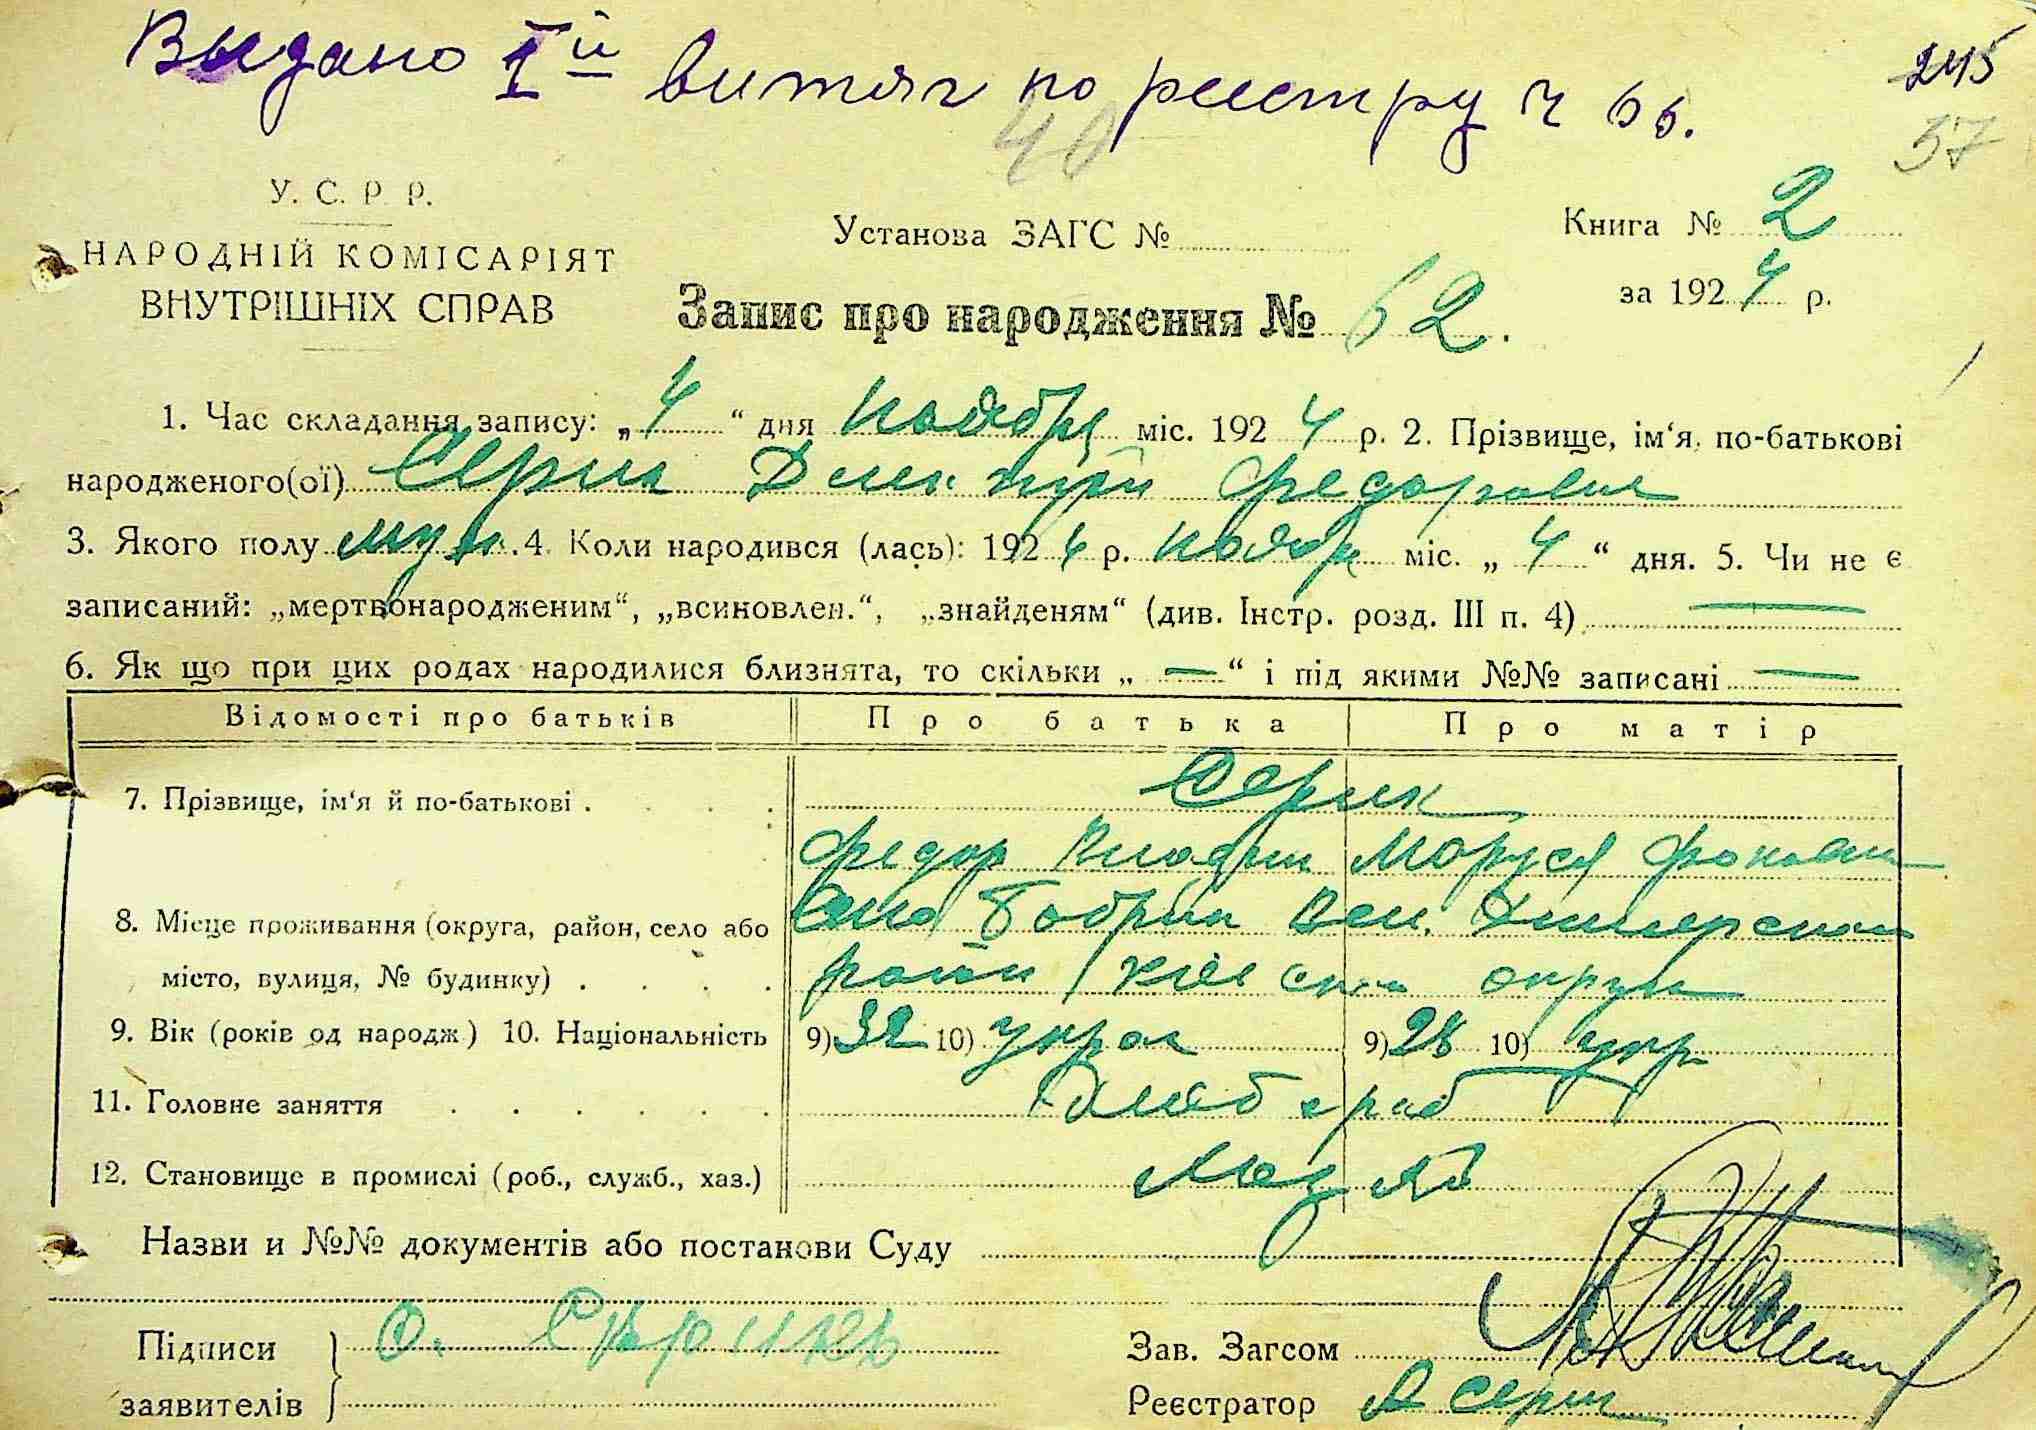 Выдано Iй витяг по реестру ч 66.
245
40
57
У. С. Р. Р.
НАРОДНІЙ КОМІСАРІЯТ
ВНУТРІШНІХ СПРАВ
Установа ЗАГС №
Книга № 2
за 1924 р.
Запис про народження № 62.
1. Час складання запису: „4“ дня ноября міс. 1924 р. 2. Прізвище, ім‘я, по-батькові
народженого(ої) Серик Федорович
3. Якого полу муж. 4. Коли народився (лась): 1924 р. ноябр міс. „4“ дня. 5. Чи не є
записаний: „мертвонародженим“, „всиновлен.“, „знайденям“ (див. Інстр. розд. III п. 4) —
6. Як що при цих родах народилися близнята, то скільки „ — “ і під якими №№ записані —
Відомості про батьків Про батька Про матір
7. Прізвище, ім‘я й по-батькові . . . . Серик
Федор Маруся
8. Місце проживання (округа, район, село або Село Бобрик
місто, вулиця, № будинку) . . . . округи
9. Вік (років од народж.) 10. Національність 9) 32 10) украг 9) 28 10) укр
11. Головне заняття . . . . . . хлебороб
12. Становище в промислі (роб., служб., хаз.) хозяев
Назви и №№ документів або постанови Суду
Підписи
заявителів
Зав. Загсом
Реєстратор А Серик